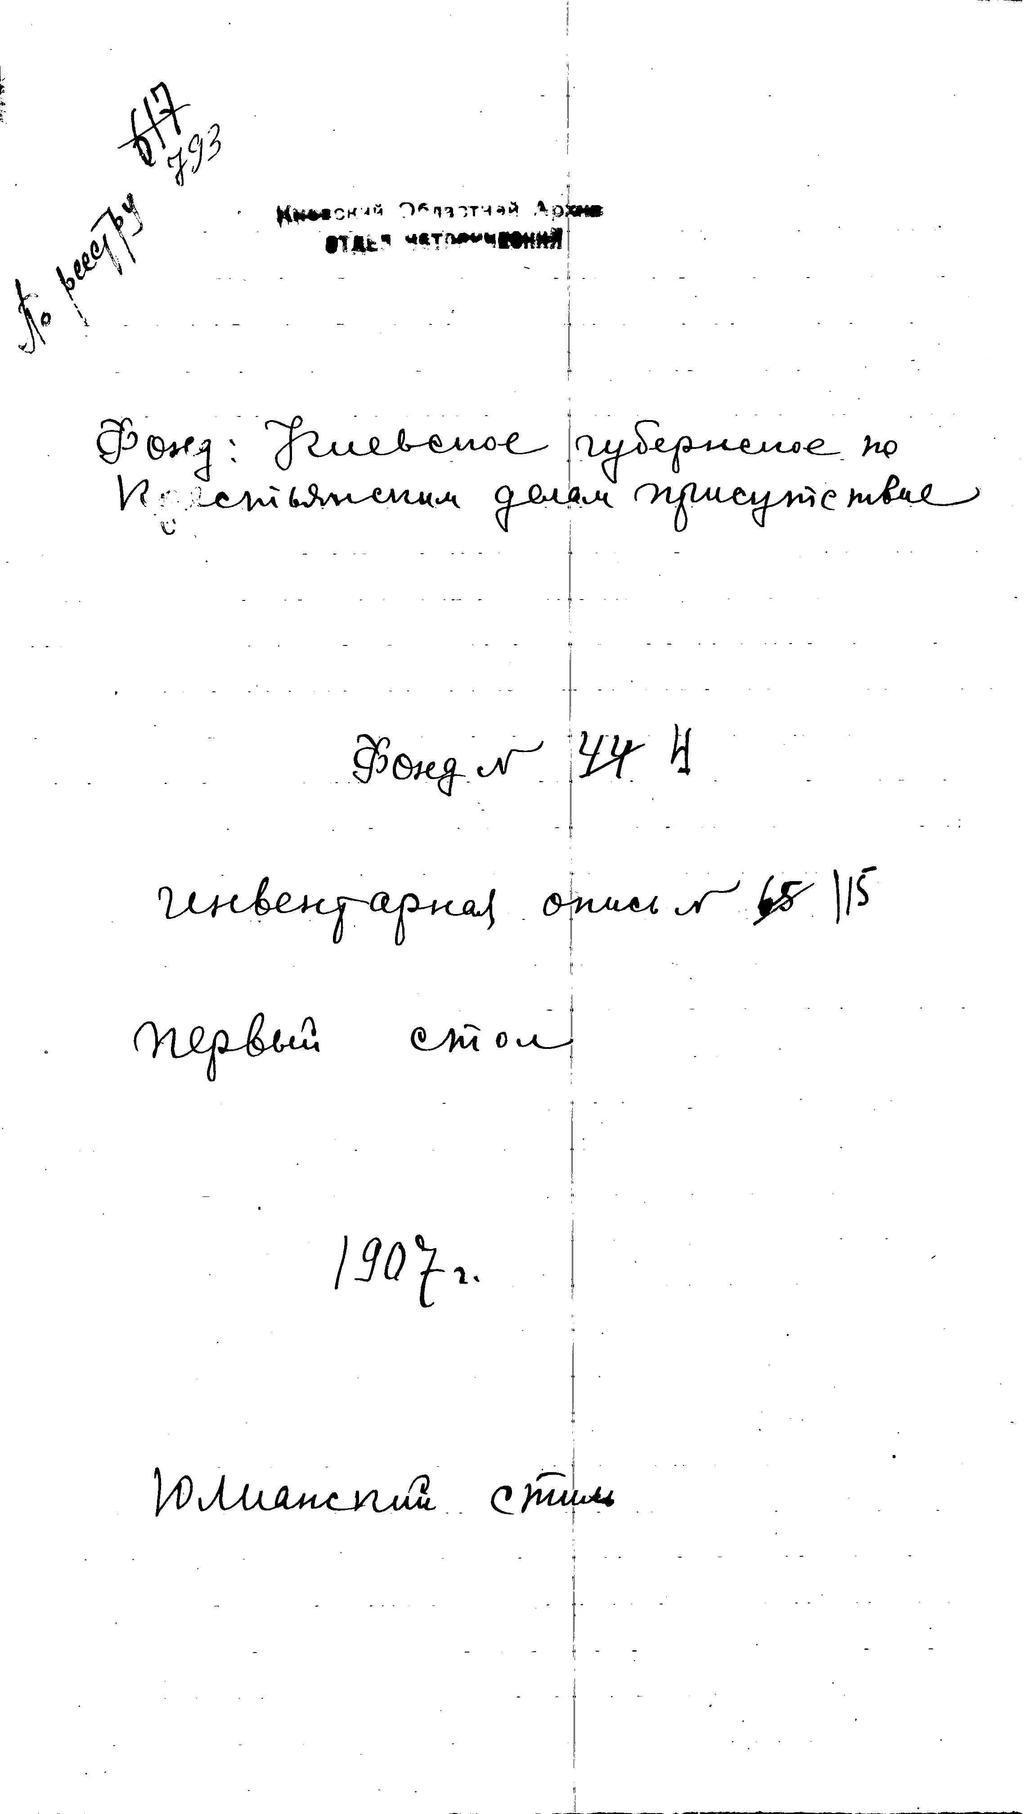 По реестру 617
793
Киевский Областной Архив
ОТДЕЛ ИСТОРИЧЕСКИЙ
Фонд: Киевское губернское по
Крестьянским делам присутствие
Фонд № 44 4
инвентарная опись № 65 115
первый стол
1907 г.
Юлианский стиль